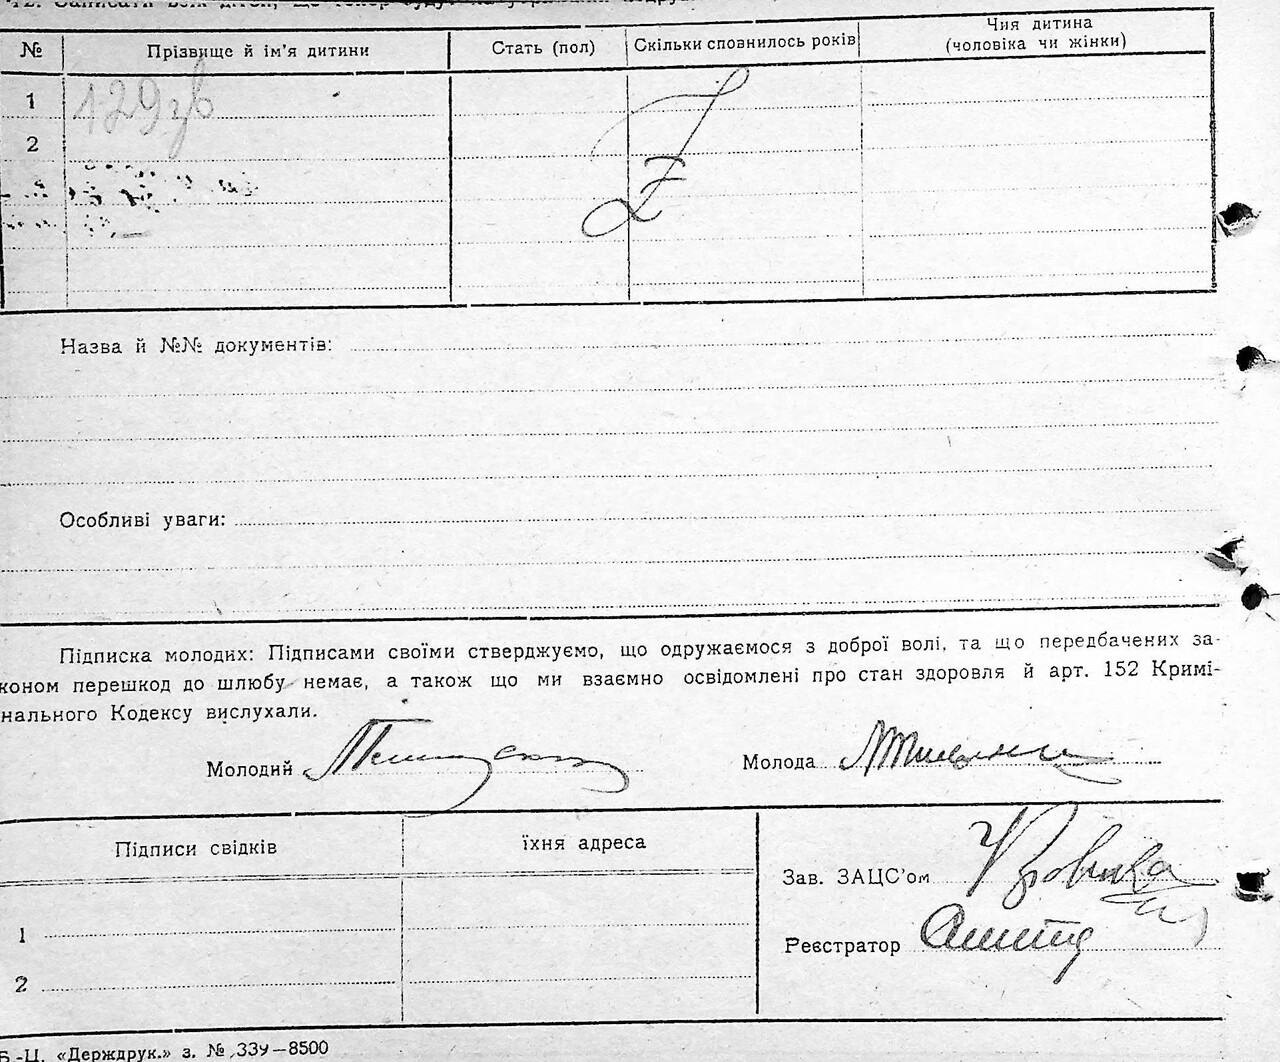 12. Записати всіх дітей, що тепер будуть на утриманні подруж
№ Прізвище й ім'я дитини Стать (пол) Скільки сповнилось років Чия дитина (чоловіка чи жінки)
1 129 зв
2
Назва й №№ документів:
Особливі уваги:
Підписка молодих: Підписами своїми стверджуємо, що одружаємося з доброї волі, та що передбачених за-
коном перешкод до шлюбу немає, а також що ми взаємно освідомлені про стан здоровля й арт. 152 Кримі-
нального Кодексу вислухали.
Молодий Молода
Підписи свідків їхня адреса
Зав. ЗАЦС'ом
1
Реєстратор
2
Б.-Ц. «Держдрук.» з. № 339—8500